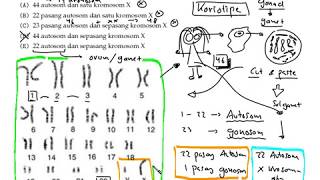 (A) 44 autosom dan sepasang kromosom X
(B) 22 pasang autosom dan satu kromosom X
(C) 23 pasang autosom dan sepasang kromosom X
(D) 44 autosom dan sepasang kromosom X
(E) 22 autosom dan sepasang kromosom X
Kariotipe
gonad
gamet
ovum/gamet
46
Cut & paste
Sel gamet
1 - 22 → Autosom
23 → gonosom
22 pasang Autosom
1 pasang gonosom
22 Autosom
X kromosom
1 2 3 4 5
6 7 8 9 10 11 12
13 14 15 16 17 18